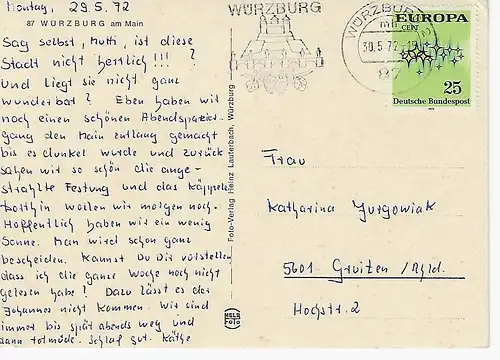 Montag, 29.5.72
87 WÜRZBURG am Main
Sag selbst, Mutti, ist diese
Stadt nicht herrlich!!! ?
Und liegt sie nicht ganz
wunderbar? Eben haben wir
noch einen schönen Abendspazier-
gang den Main entlang gemacht
bis es dunkel wurde und zurück
sahen wir so schön die ange-
strahlte Festung und das Käppele.
Dorthin wollen wir morgen noch.
Hoffentlich haben wir ein wenig
Sonne. Man wird schon ganz
bescheiden. Kannst Du Dir vorstellen
dass ich die ganze Woche noch nicht
gelesen habe? Dazu lässt es der
Johannes nicht kommen. Wir sind
immer bis spät abends weg und
dann totmüde. Schlaf gut. Käthe
Foto-Verlag Heinz Lauterbach, Würzburg
WÜRZBURG
WÜRZBURG
30.5.72
87
EUROPA
CEPT
25
Deutsche Bundespost
Frau
Katharina Jurgowiak
5601 Gruiten/Rhld.
Hochstr. 2